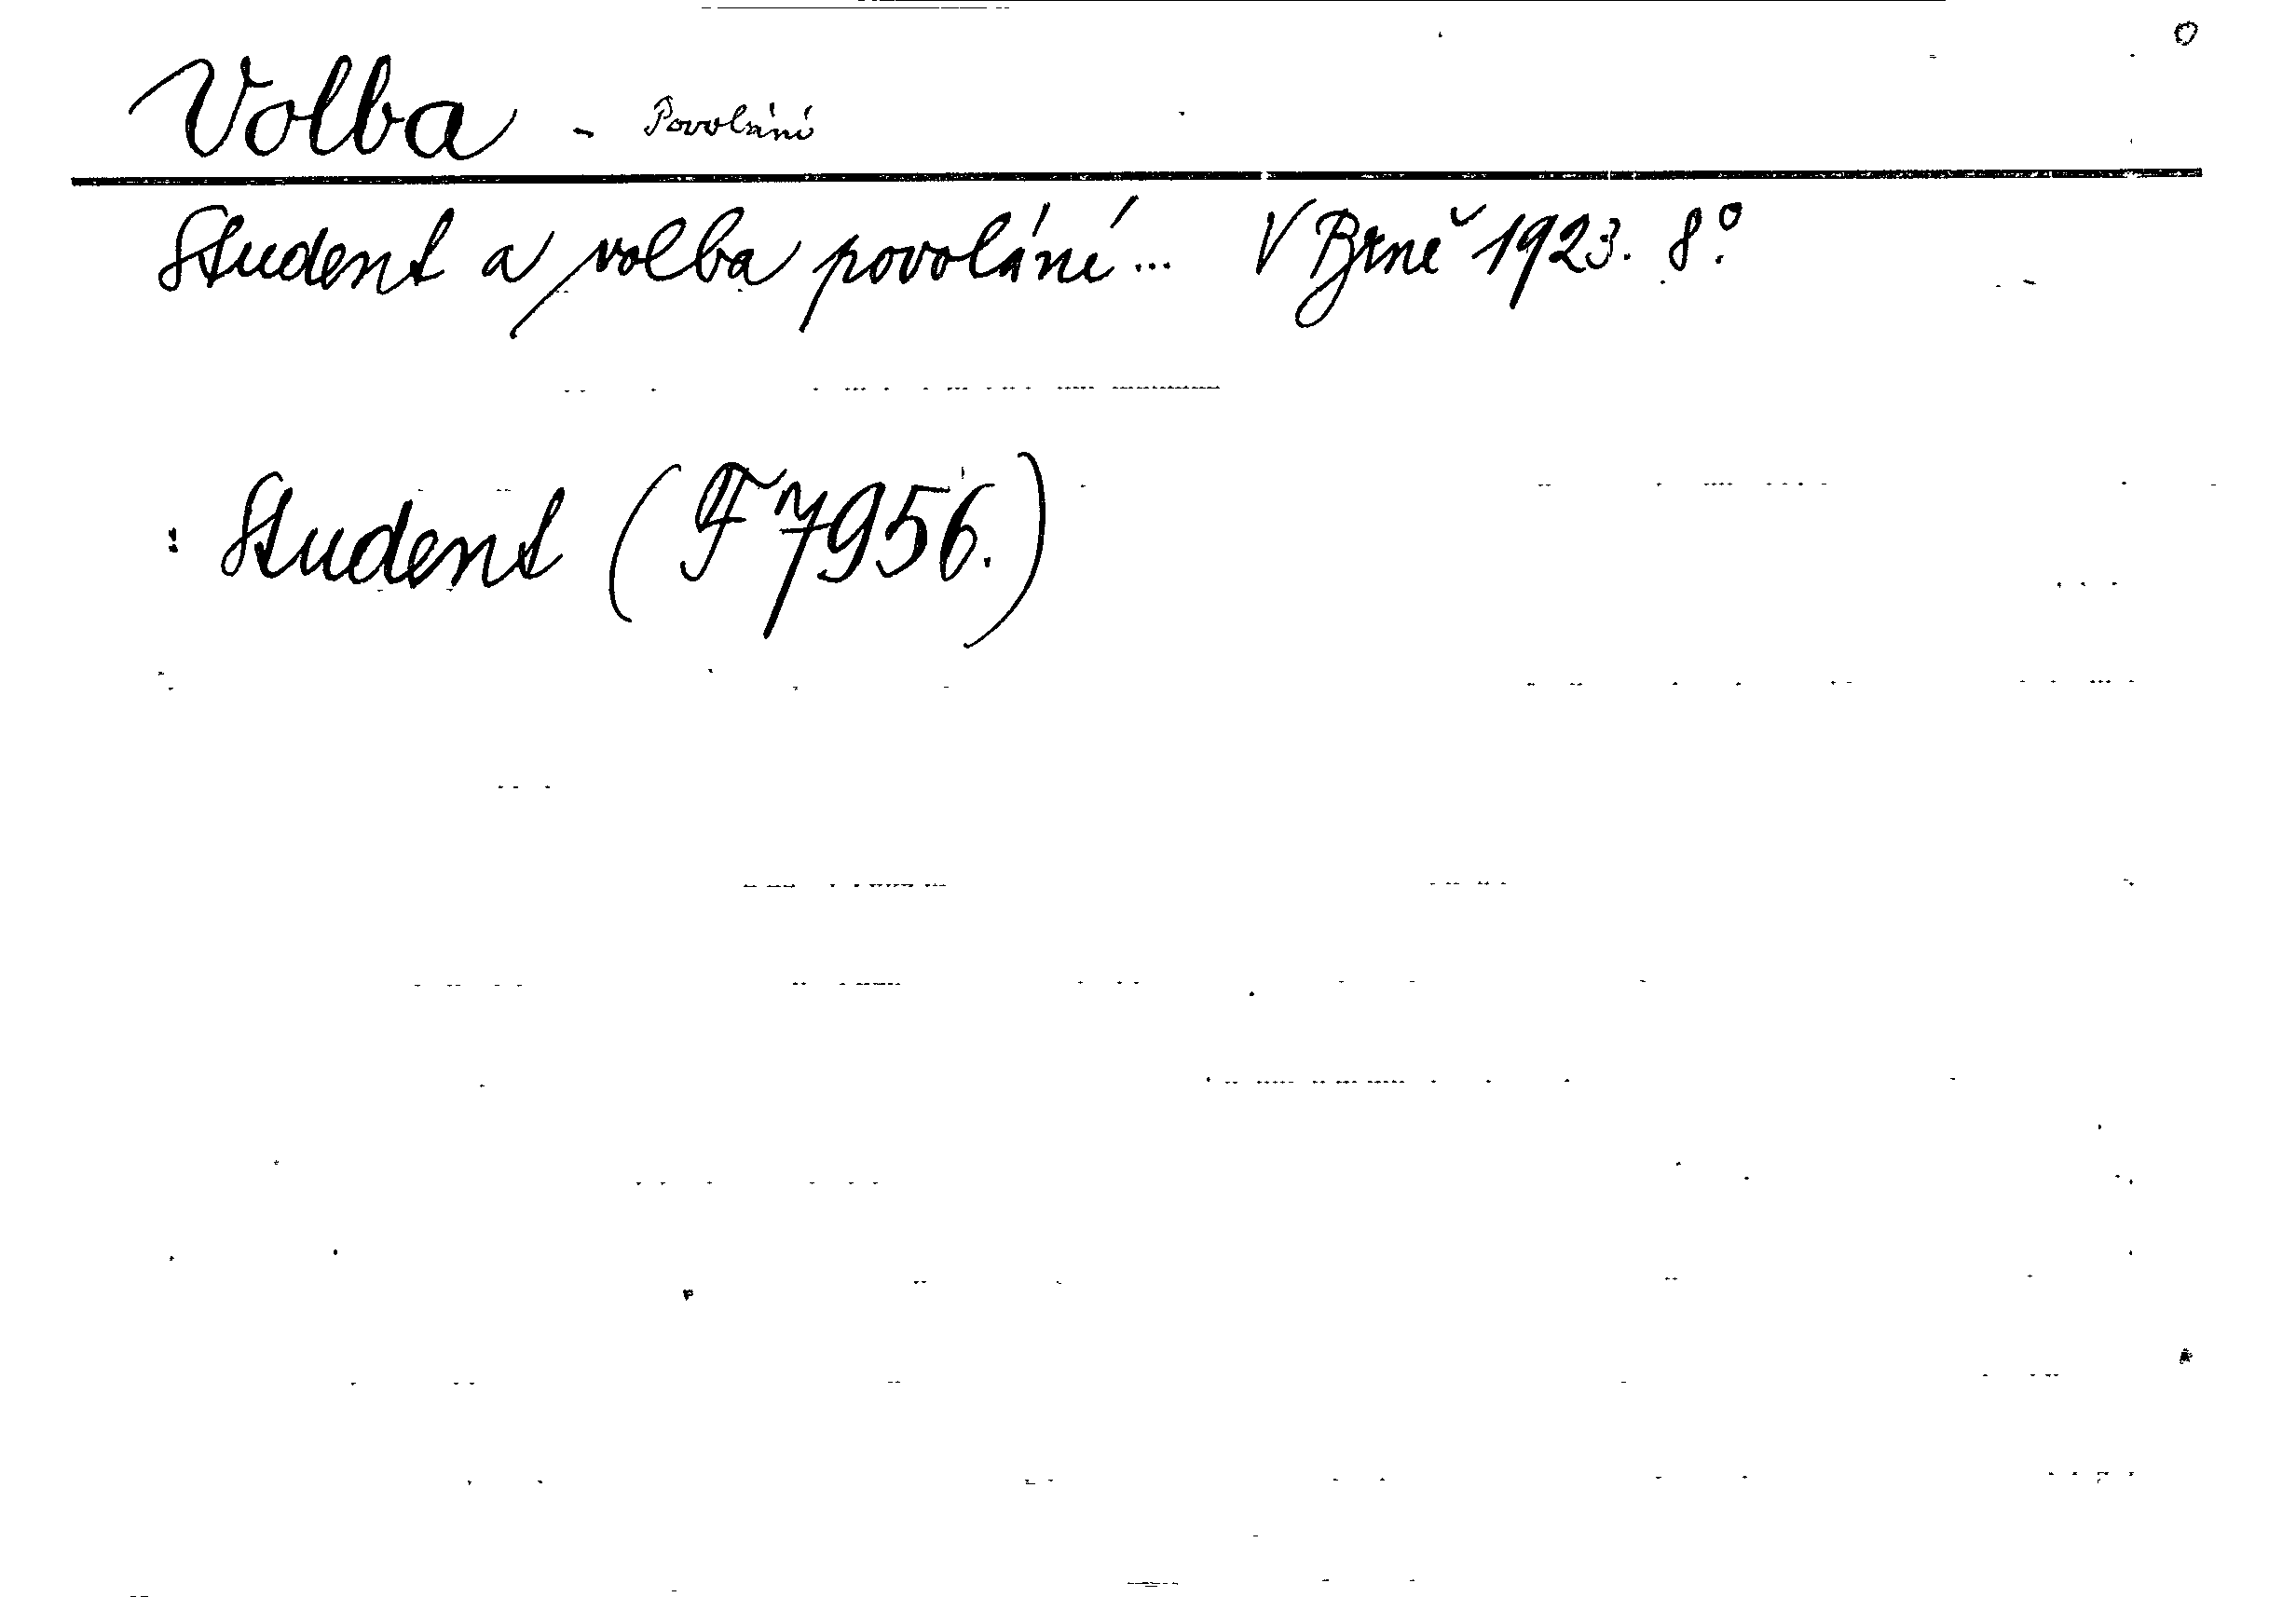 Volba - Povolání
Student a volba povolání... V Brně 1923. 8°.
: Student (F 7956.)